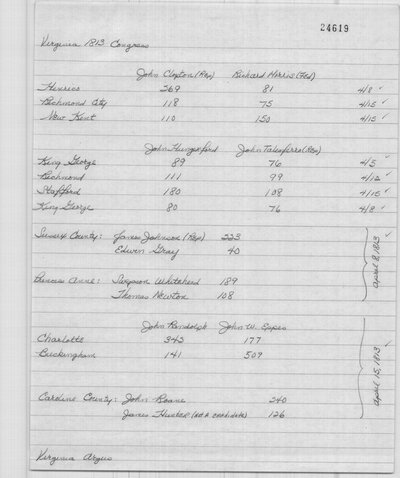 24619
Virginia 1813 Congress
John Clopton (Rep) Richard Morris (Fed)
Henrico 269 81 4/8 ✓
Richmond City 118 75 4/15 ✓
New Kent 110 150 4/15 ✓
John Hungerford John Taliaferro (Rep)
King George 89 76 4/5 ✓
Richmond 111 99 4/12 ✓
Stafford 180 108 4/15 ✓
King George 80 76 4/8 ✓
Sussex County: James Johnson (Rep) 223
Edwin Gray 40
Princess Anne: Sampson Whitehead 189
Thomas Newton 108
April 8, 1813 ✓
John Randolph John W. Eppes
Charlotte 343 177
Buckingham 141 509
Caroline County: John Roane 240
James Hunter (not a candidate) 126
April 15, 1813 ✓
Virginia Argus